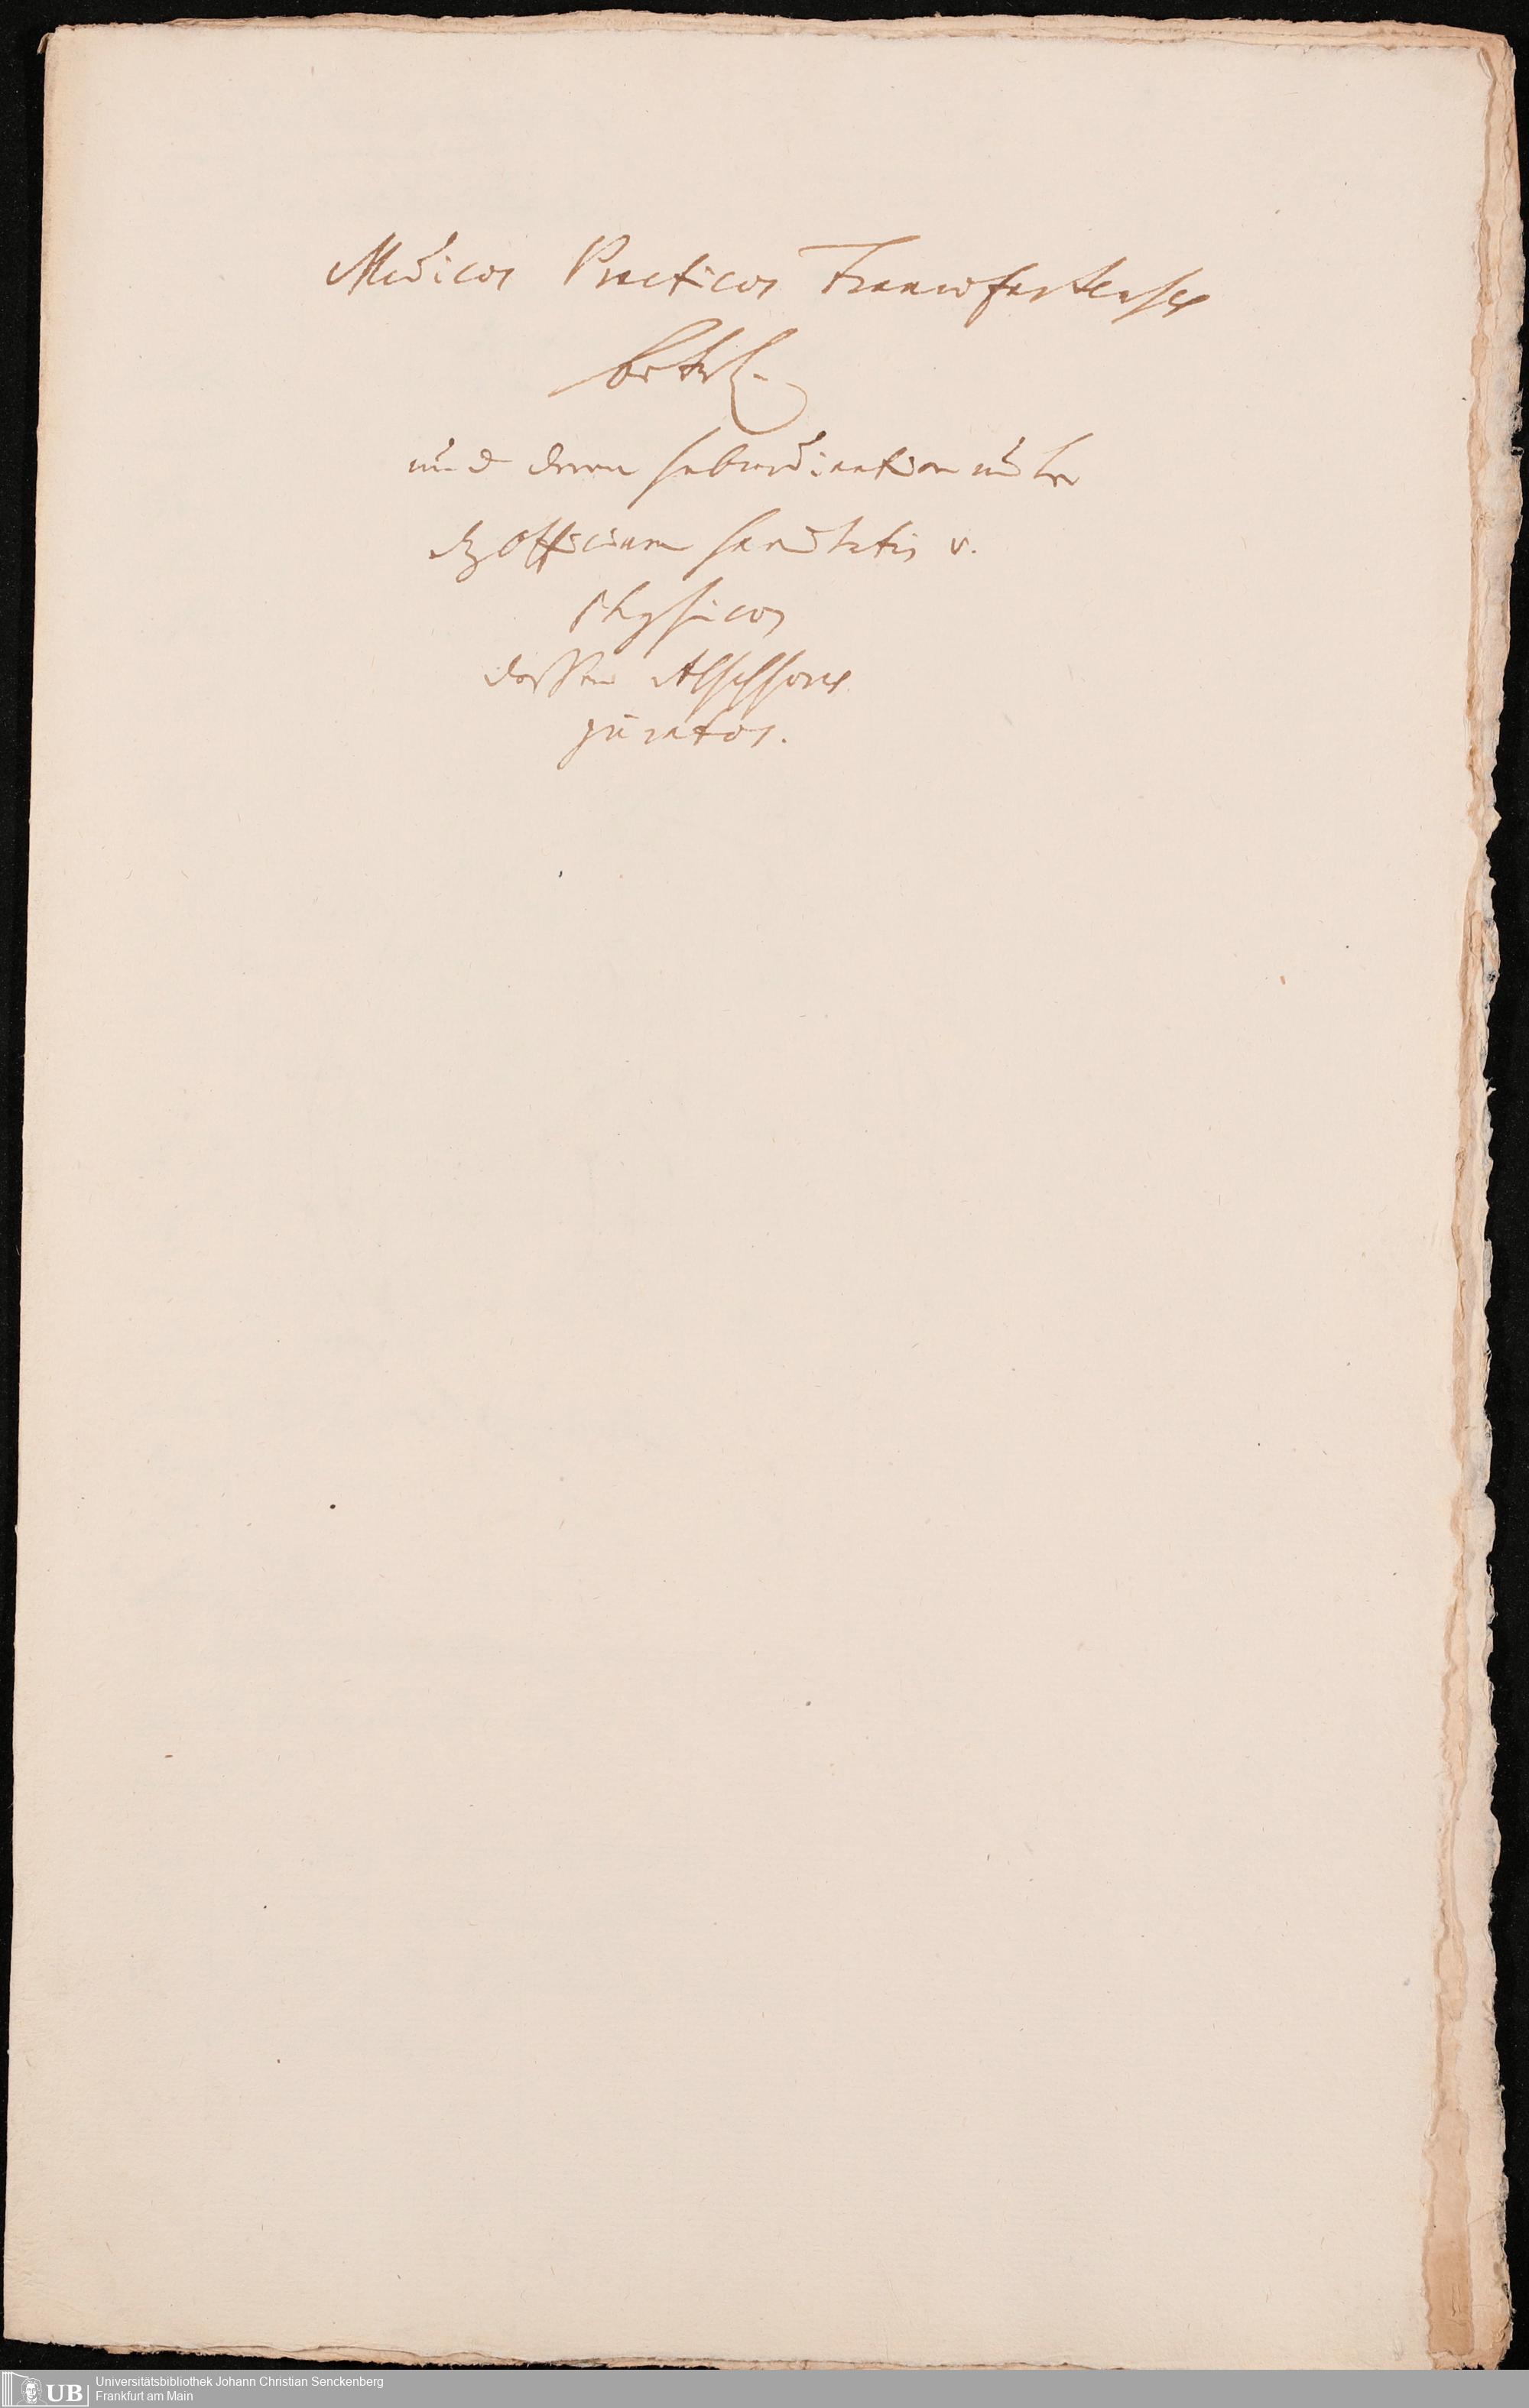 Medicos Practicos Francofurtenses
betr.
und deren subordination unter
dz Officium sanitatis v.
Physicos
dessen Assessores
juratos.
UB
Universitätsbibliothek Johann Christian Senckenberg
Frankfurt am Main